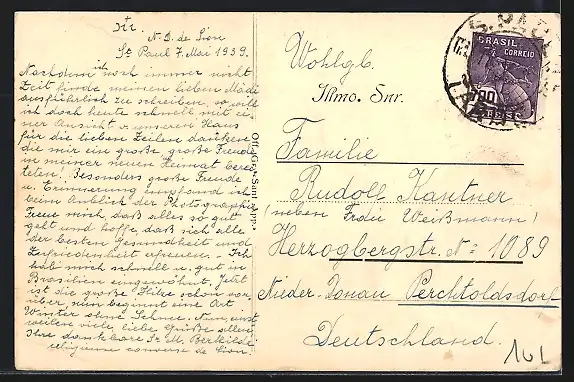 N. D. de Sion
St. Paul 7. Mai 1939.
Nachdem ich noch immer nicht
Zeit finde meinen lieben Mädi
ausführlich zu schreiben, so will
ich doch heute schnell mit ei-
ner Ansicht v. unserem Haus
für die lieben Zeilen danken,
die mir eine große große Freude
in meiner neuen Heimat berei-
teten! Besonders große Freude
u. Erinnerung empfand ich
beim Anblick der Photographie.
Freue mich, daß alles so gut
geht und hoffe, daß sich alle
der besten Gesundheit und
Zufriedenheit erfreuen. - Ich
hab mich schnell u. gut in
Brasilien eingewöhnt. Jetzt
ist die große Hitze schon vor-
über, nun beginnt eine Art
Winter ohne Schnee. Nun einst-
weilen viele, liebe Grüße allen
Ihre dankbare Sr. M. Berkilde
religieuse converse de Sion.
BRASIL
CORREIO
Wohlgb.
Illmo. Snr.
Familie
Rudolf Kantner
(neben Frau Weißmann)
Herzogbergstr. № 1089
Nieder-Donau Perchtoldsdorf
Deutschland.